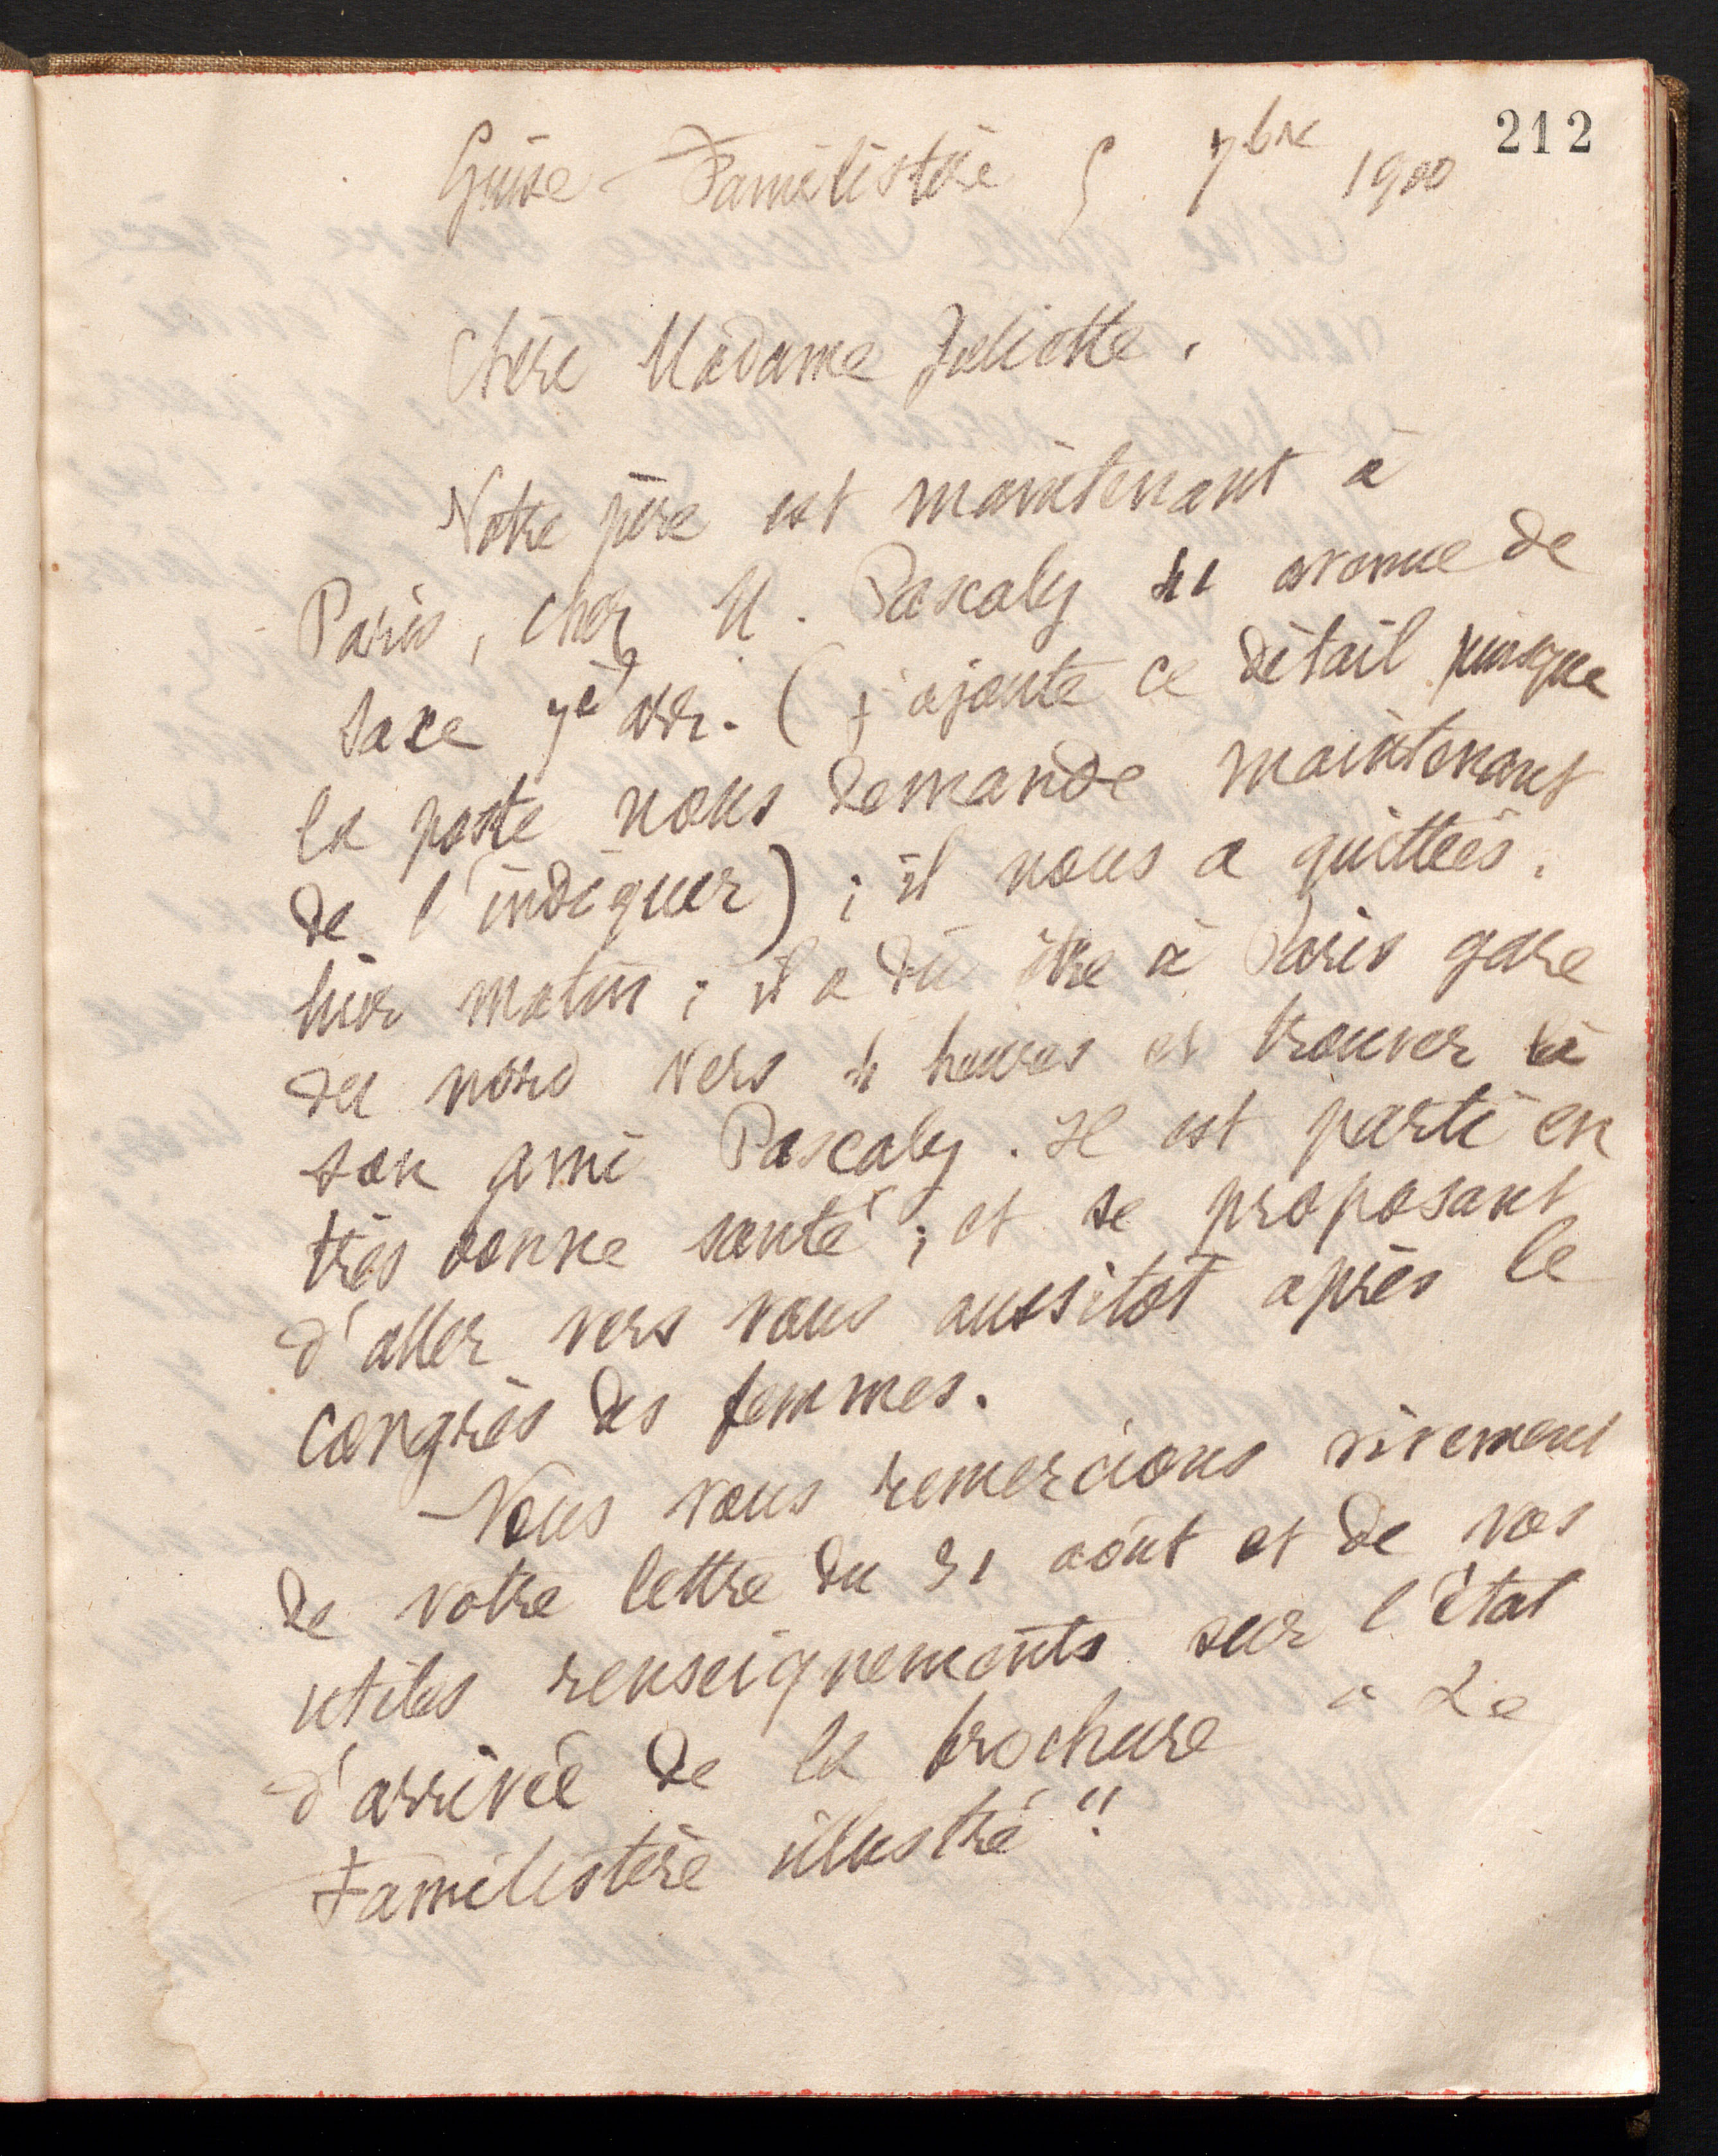 212
Guise - Familistère 5 7bre 1900
Chère Madame Juliette.
Notre père est maintenant à
Paris, chez M. Pascaly 41 avenue de
Saxe 7e arr. (j'ajoute ce détail puisque
la poste nous demande maintenant
de l'indiquer) ; il nous a quittées
hier matin ; il a dû être à Paris gare
du nord vers 4 heures et trouver là
son ami Pascaly. Il est parti en
très bonne santé ; et se proposant
d'aller vers vous aussitôt après le
congrès des femmes.
Nous vous remercions vivement
de votre lettre du 31 août et de vos
utiles renseignements sur l'état
d'arrivée de la brochure "Le
Familistère illustré".